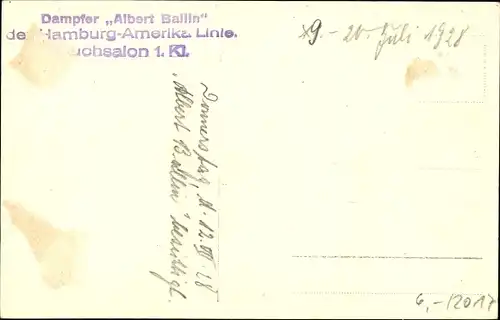 Dampfer „Albert Ballin"
der Hamburg-Amerika Linie.
Rauchsalon 1. Kl.
9. - 20. Juli 1928
Donnerstag, 12. VII. 28
„Albert Ballin" besichtigt.
6,-12017